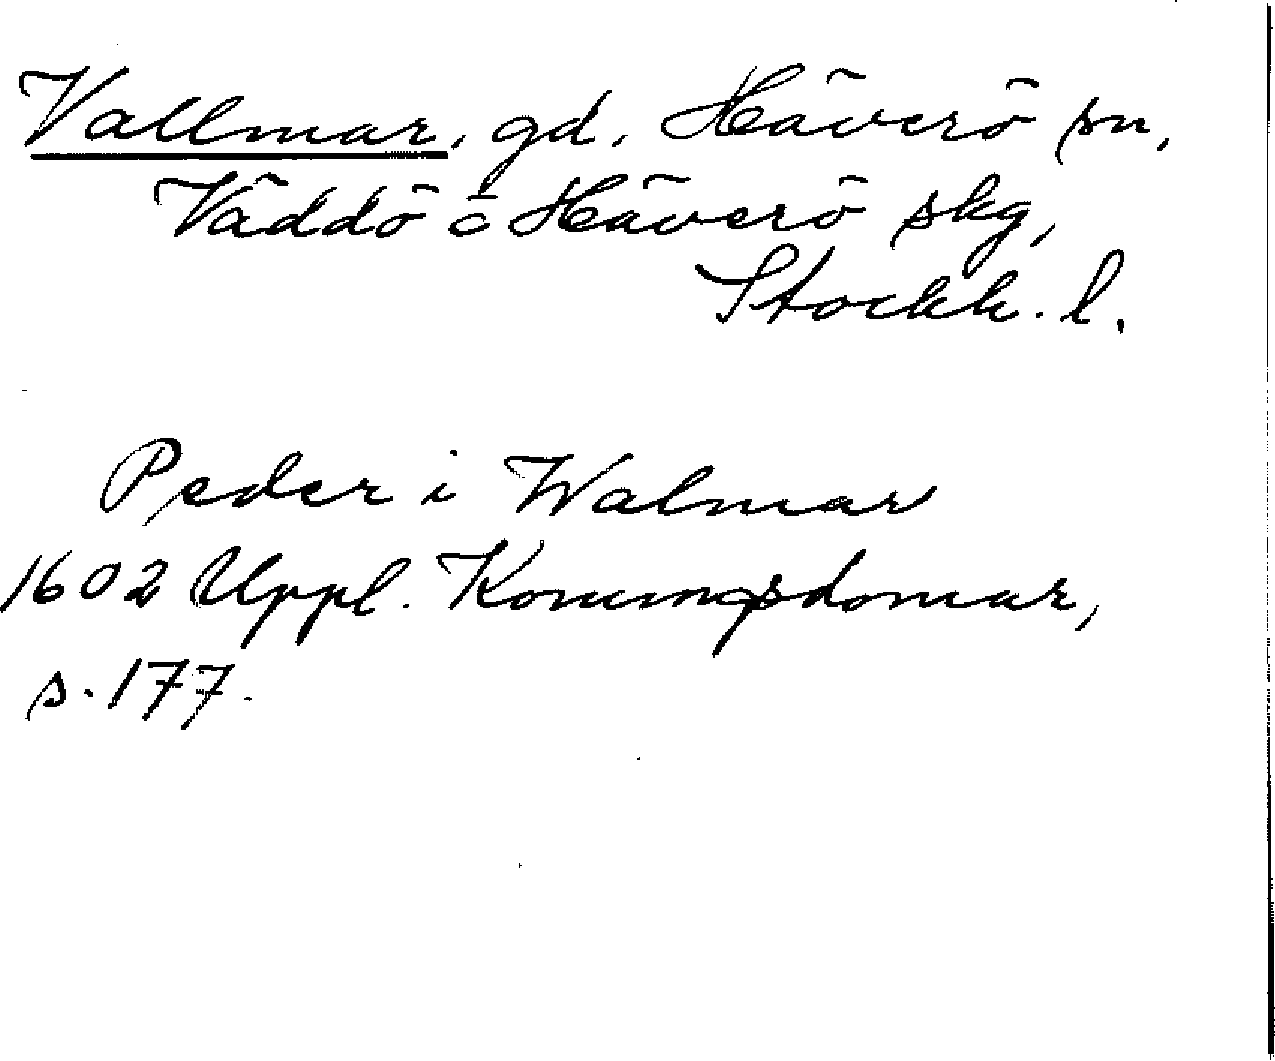 Vallmar, gd, Häverö sn,
Väddö o Häverö skg,
Stockh. l.
Peder i Walmar
1602 Uppl. Konungsdomar,
s. 177.